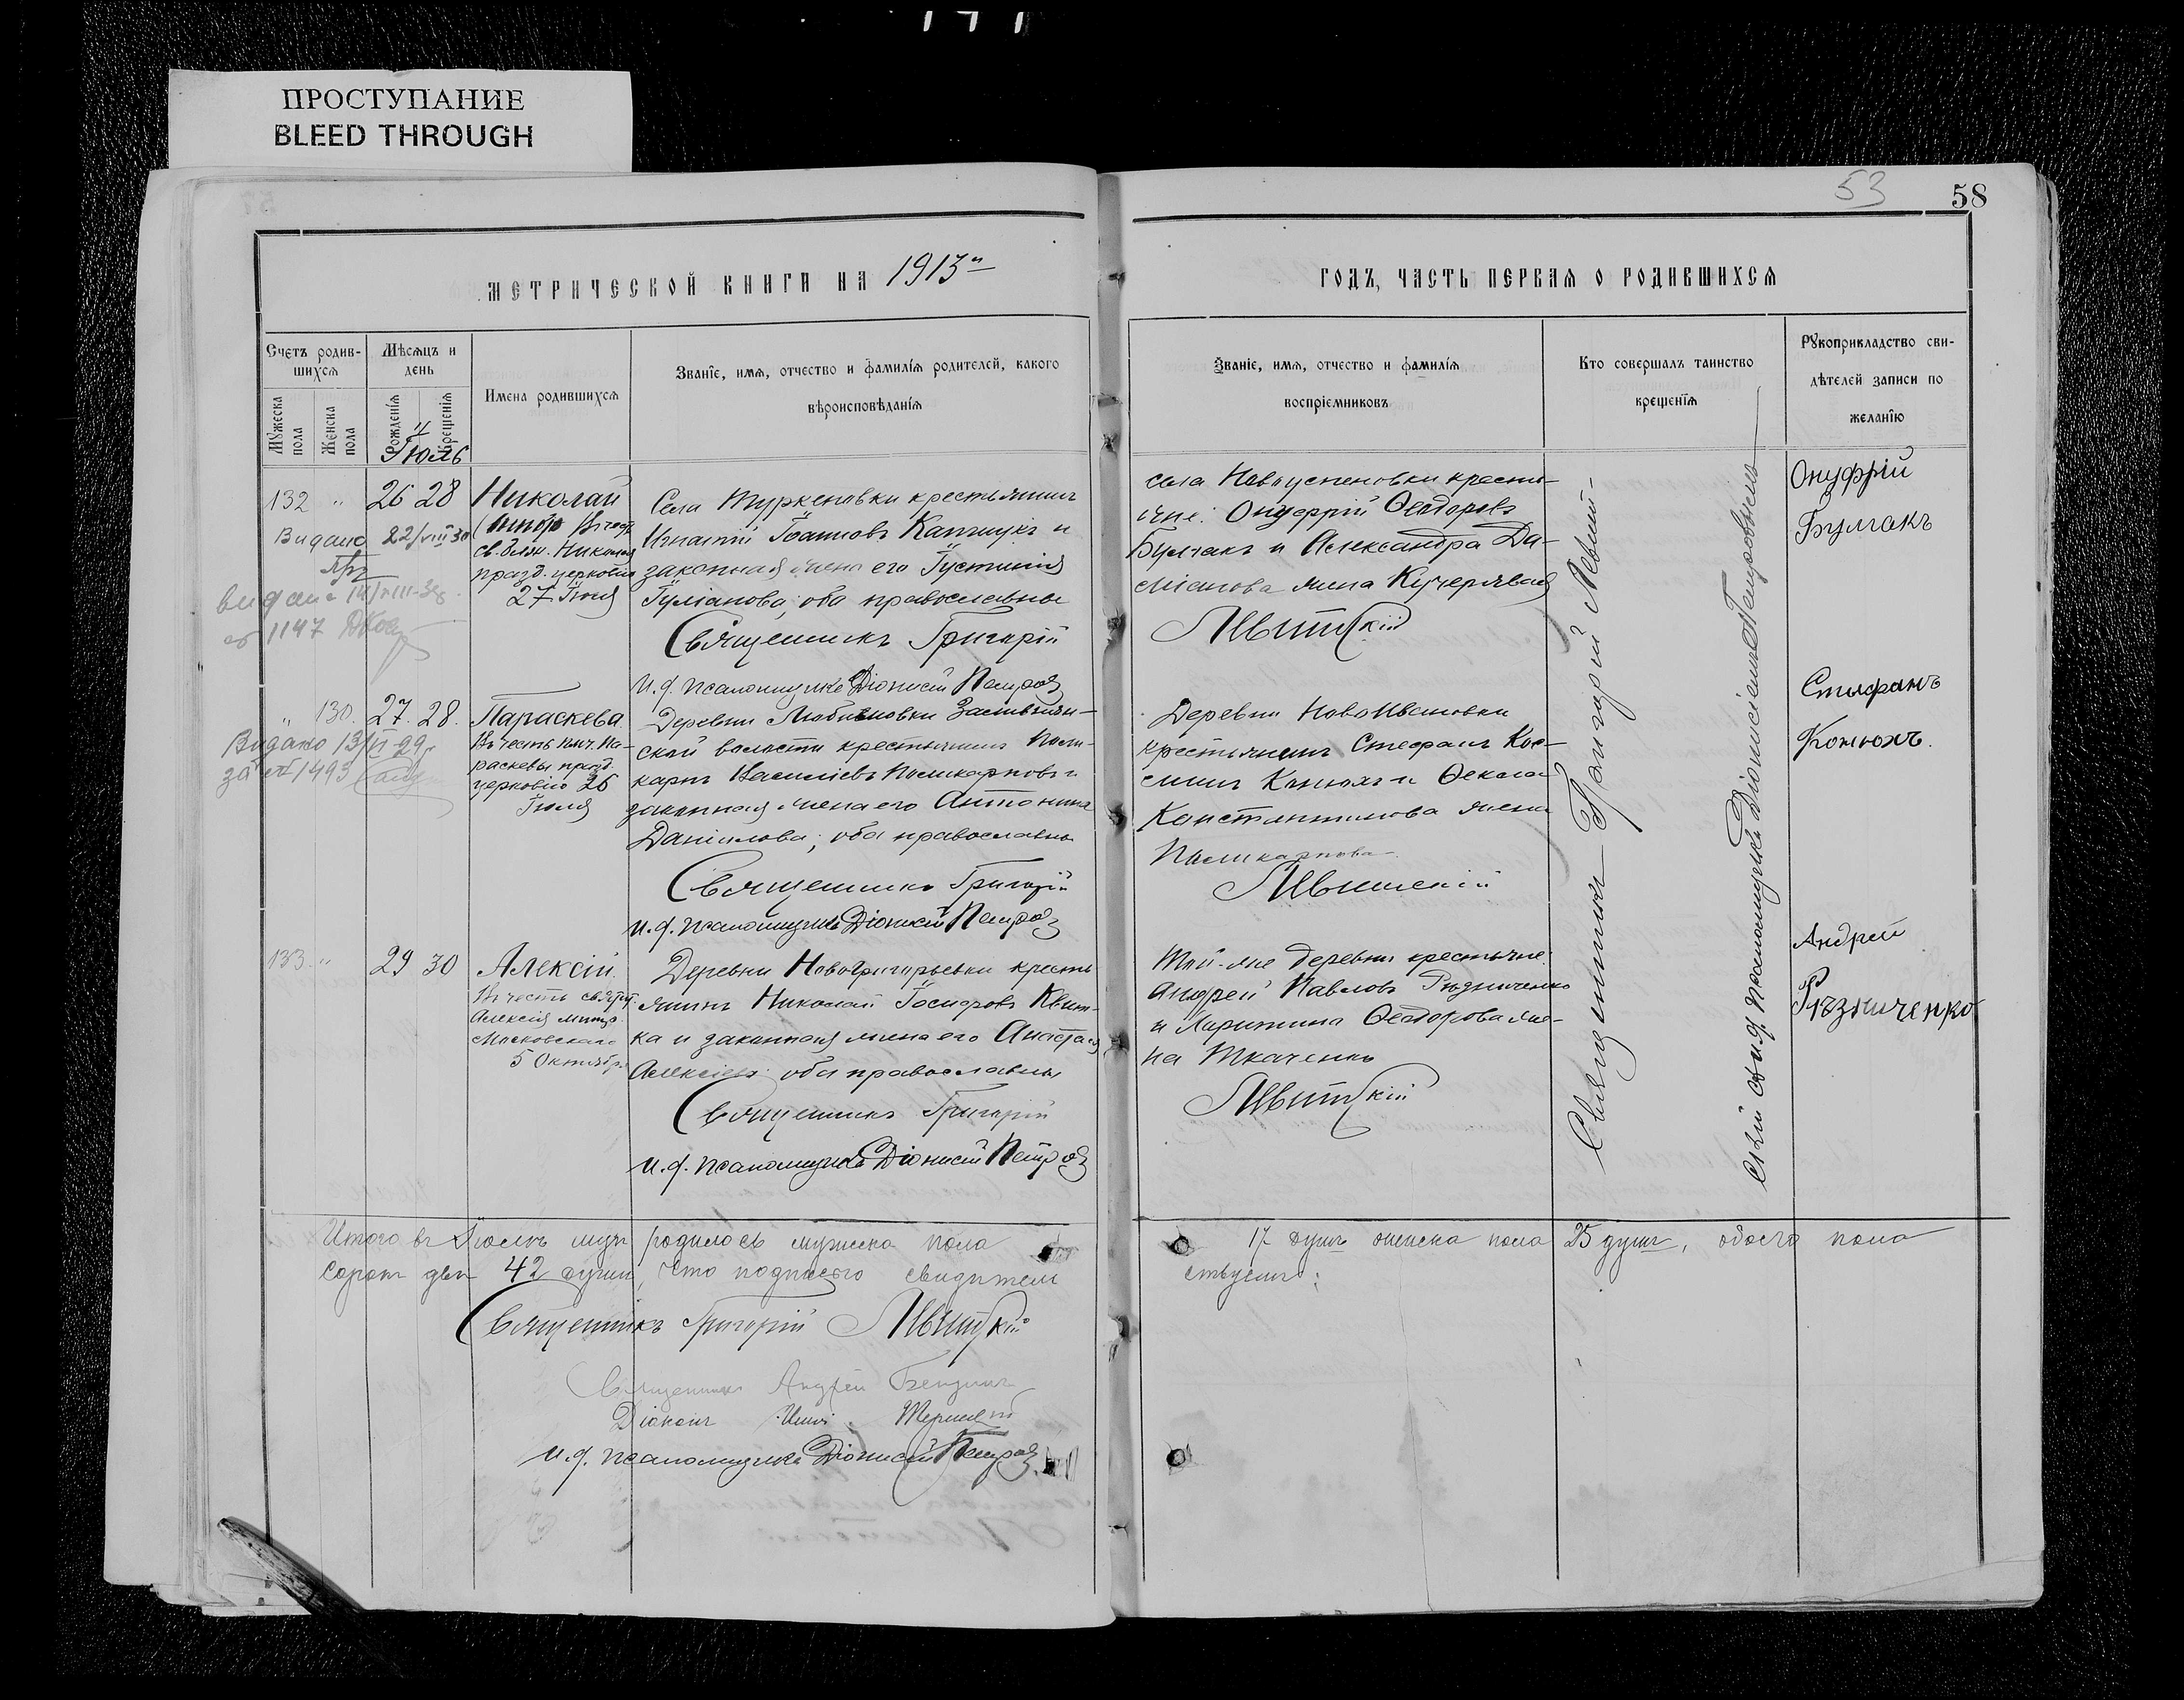 ПРОСТУПАНИЕ
BLEED THROUGH
53
58
МЕТРИЧЕСКОЙ КНИГИ НА 1913
ГОДЪ, ЧАСТЬ ПЕРВАЯ О РОДИВШИХСЯ
Счетъ родив-
шихся
Мужеска пола
Женска пола
Мѣсяцъ и
день
Рожденія
Крещенія
Имена родившихся
Званіе, имя, отчество и фамилія родителей, какого
вѣроисповѣданія
Званіе, имя, отчество и фамилія
воспріемниковъ
Кто совершалъ таинство
крещенія
Рукоприкладство сви-
дѣтелей записи по
желанію
Іюль
132 " 26 28
Николай
св. блаж. Николая
празд. церковію
27 Іюля
Видано 22/VIII 30
1147
Села Туркеновки крестьянинъ
Игнатій Іоанновъ и
законная жена его Іустинія
Іуліанова, оба православны
Священникъ Григорій
И. д. псаломщика Діонисій Петровъ
села Новоуспеновки крестья-
яне: Онуфрій Ѳеодоровъ
Булгакъ и Александра Да-
міанова жена Кучерявая
Левитскій
Онуфрій
Булгакъ
" 130. 27. 28.
Параскева
Въ честь муч. Па-
раскевы празд.
церковію 26
Іюля
Видано 13/VI-29
за № 1493
Деревни Любимовки
ской волости крестьянинъ Поли-
карпъ Василіевъ Поликарповъ и
законная жена его Антонина
Даніилова; оба православны
Священникъ Григорій
И. д. псаломщика Діонисій Петровъ
Деревни НовоИвановки
крестьянинъ Стефанъ Кос-
минъ Конюхъ и Ѳекла
Константинова жена
Поликарпова
Левитскій
Стефанъ
Конюхъ.
133. " 29 30
Алексій.
Въ честь свят.
Алексія митр.
Московскаго
5 Октября
Деревни НовоГригорьевки кресть-
янинъ Николай Іосифовъ Квит-
ка и законная жена его Анастасія
Алексіева оба православны
Священникъ Григорій
И. д. псаломщика Діонисій Петровъ
Той-же деревни крестьяне:
Андрей Павловъ Рѣзниченко
и Ѳеодорова же-
на Ткаченко
Левитскій
Андрей
Рѣзниченко
Священникъ Григорій Левит-
скій съ и. д. псаломщика Діонисіемъ Петровымъ
Итого въ Іюлѣ родилось мужеска пола 17 душъ женска пола 25 душъ, обоего пола
сорокъ двѣ 42 души, что подписью свидѣтель ствуемъ:
Священникъ Григорій Левитскій
Священникъ Андрей
Діаконъ
И. д. псаломщика Діонисій Петровъ